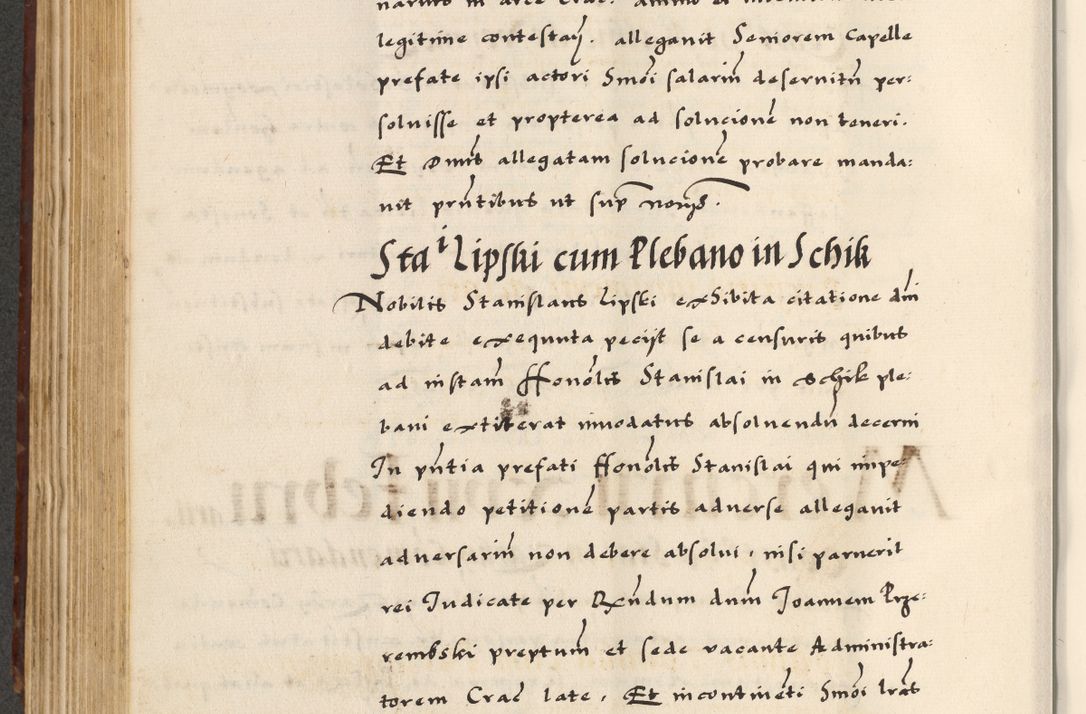 legitime contestaɉ. allegauit Seniorem Capelle
prefate ipsi actori Smōi salariū deseruitū per:
soluisse et propterea ad solucionē non teneri.
Et Dnūs allegatam solucionē probare manda:
uit prn̄tibus ut sup̄
Staⁱ Lipski cum Plebano in Schik
Nobilis Stanislaus Lipski exhibita citatione dn̄i
debite exequuta pecijt se a censuris quibus
ad instam̄ Honōlis Stanislai in Schik ple:
bani extiterat inuodatus absoluendū decerni
In pn̄tia prefati Honōlis Stanislai qui impe
diendo petitionē partis aduerse allegauit
aduersariū non debere absolui, nisi paruerit
rei Iudicate per Rx̄ndum dnm̄ Joannem Prze:
rembski preptum̄ et sede vacante Administra:
torem Crac̄ late. Et incontinēti Smōi lrās